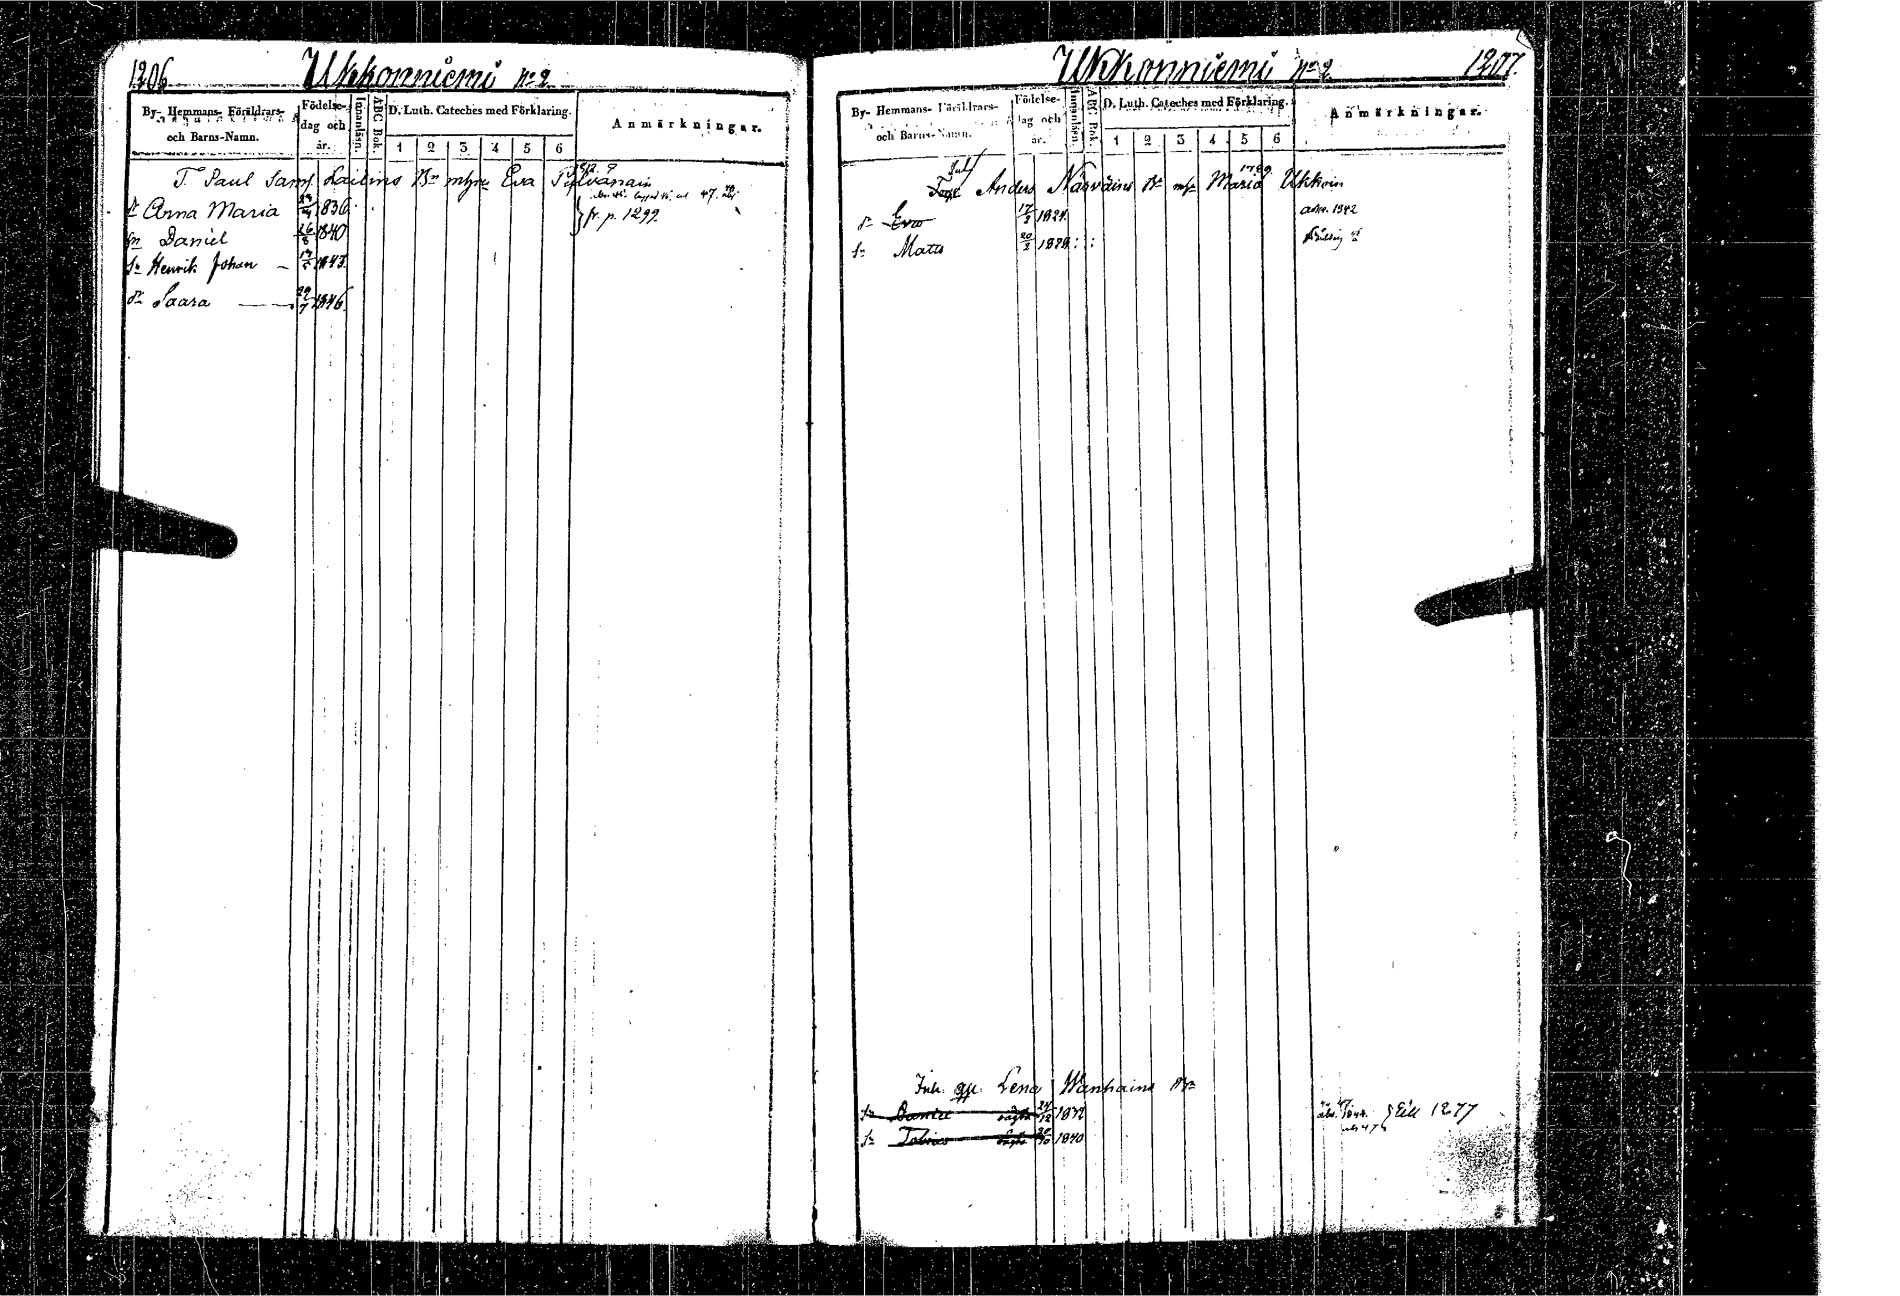 1206 Ukkonniemi No 2
By- Hemmans- Föräldrars- och Barns-Namn.
Födelse- dag och år.
Innanläsn.
ABC Bok.
D. Luth. Cateches med Förklaring.
1 2 3 4 5 6
Anmärkningar.
T. Paul Saml Laitins Bn mhru Eva
dr Anna Maria 1836
sn Daniel 26/8 1840
sn Henrik Johan — 1843
dr Saara — 1846
fr. p. 1299
Ukkonniemi No 2 1207.
By- Hemmans- Föräldrars- och Barns-Namn.
Födelse- dag och år.
Innanläsn.
ABC Bok.
D. Luth. Cateches med Förklaring.
1 2 3 4 5 6
Anmärkningar.
Inh
Anders Närväins Bn Maria Ukkoin
1789
dr Eva 17/2 1824 1842
sn Matts 20/2 1828
Inh. Lena Wanhains Bn
sn Daniel 24/12 1832 till 1277
sn Tobias 20/10 1840